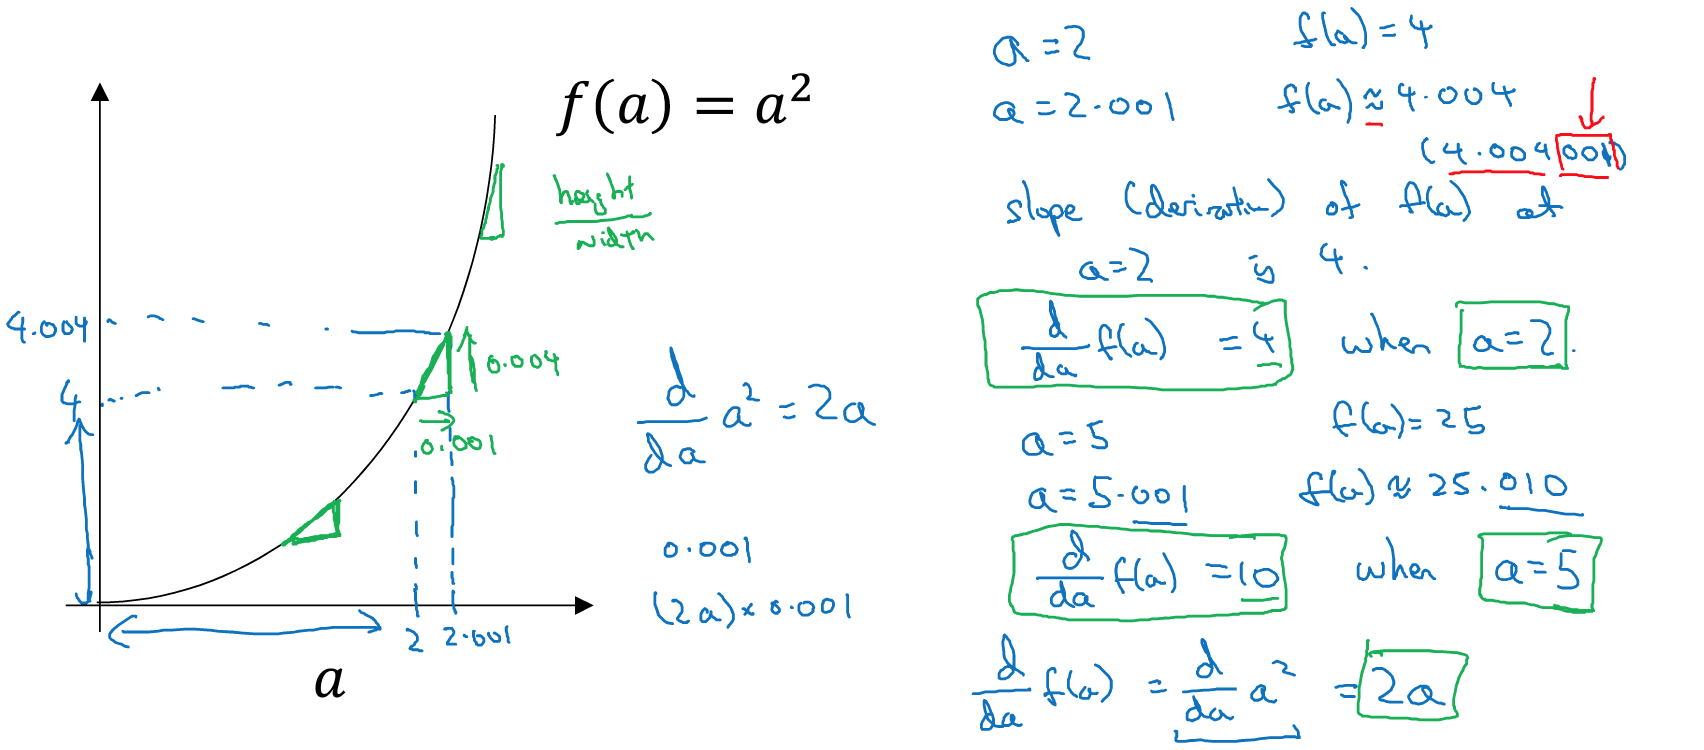 f(a) = a²
height
width
4.004
4
0.004
0.001
2
2.001
a
d/da a² = 2a
0.001
(2a) × 0.001
a = 2 f(a) = 4
a = 2.001 f(a) ≈ 4.004
(4.004001)
slope (derivative) of f(a) at
a = 2 is 4.
d/da f(a) = 4 when a = 2.
a = 5 f(a) = 25
a = 5.001 f(a) ≈ 25.010
d/da f(a) = 10 when a = 5
d/da f(a) = d/da a² = 2a